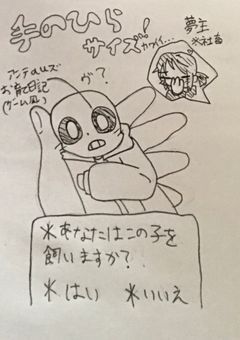 手のひら
サイズ!
カワイイ...
夢主
※社畜
アンテauズ
お育て日記
(ゲーム風)
ヴ?
※あなたはこの子を
飼いますか?
※はい ※いいえ